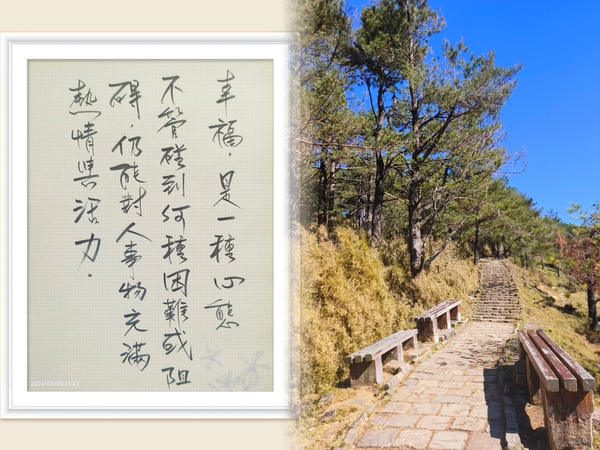 幸福，是一種心態
不管碰到何種困難或阻
礙，仍能對人事物充滿
熱情與活力．
2024/06/05 11:43